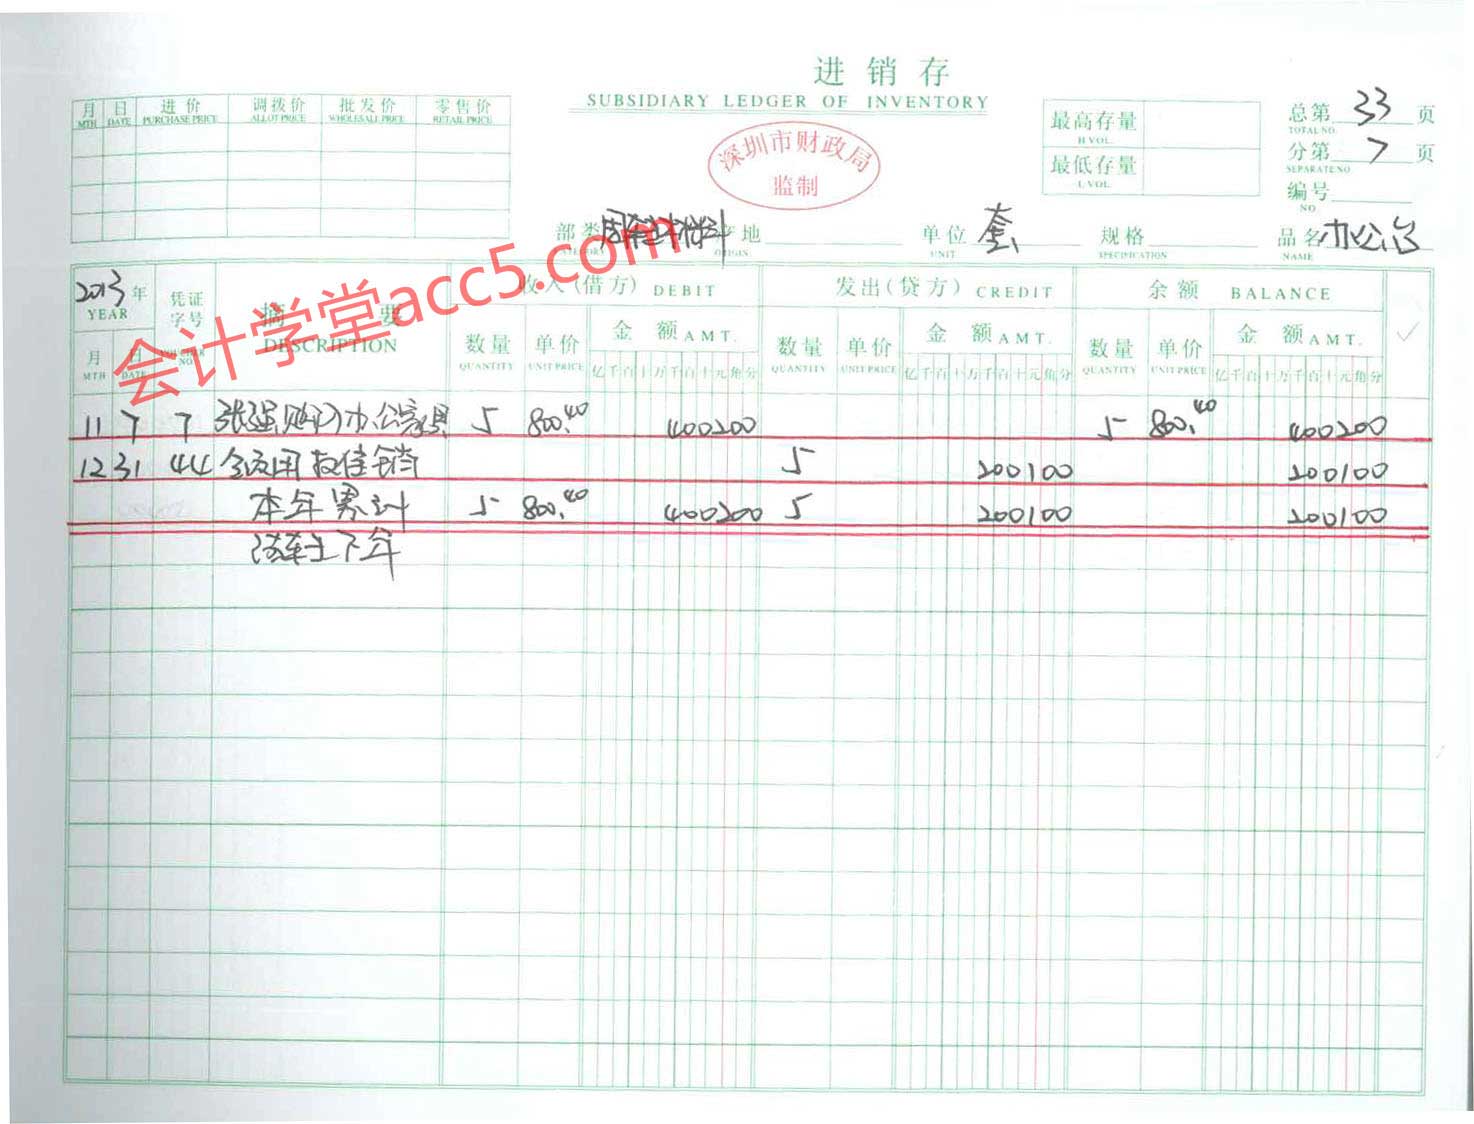 进销存
SUBSIDIARY LEDGER OF INVENTORY
深圳市财政局
监制
月 日 进价 调拨价 批发价 零售价
MTH DATE PURCHASE PRICE ALLOT PRICE WHOLESALE PRICE RETAIL PRICE
最高存量
H VOL.
最低存量
L VOL.
总第 33 页
TOTAL NO.
分第 7 页
SEPARATE NO
编号
NO
部类 周转材料 产地 单位 套 规格 品名 办公台
CATEGORY ORIGIN UNIT SPECIFICATION NAME
会计学堂acc5.com
2013年 凭证字号 摘要 收入(借方) DEBIT 发出(贷方) CREDIT 余额 BALANCE
YEAR VOUCHER NO. DESCRIPTION
月 日 数量 单价 金额 AMT. 数量 单价 金额 AMT. 数量 单价 金额 AMT.
MTH DATE QUANTITY UNIT PRICE 亿千百十万千百十元角分 QUANTITY UNIT PRICE 亿千百十万千百十元角分 QUANTITY UNIT PRICE 亿千百十万千百十元角分
11 7 7 张强购入办公家具 5 800.40 400200 5 800.40 400200
12 31 44 5 200100 200100
本年累计 5 800.40 400200 5 200100 200100
结转下年